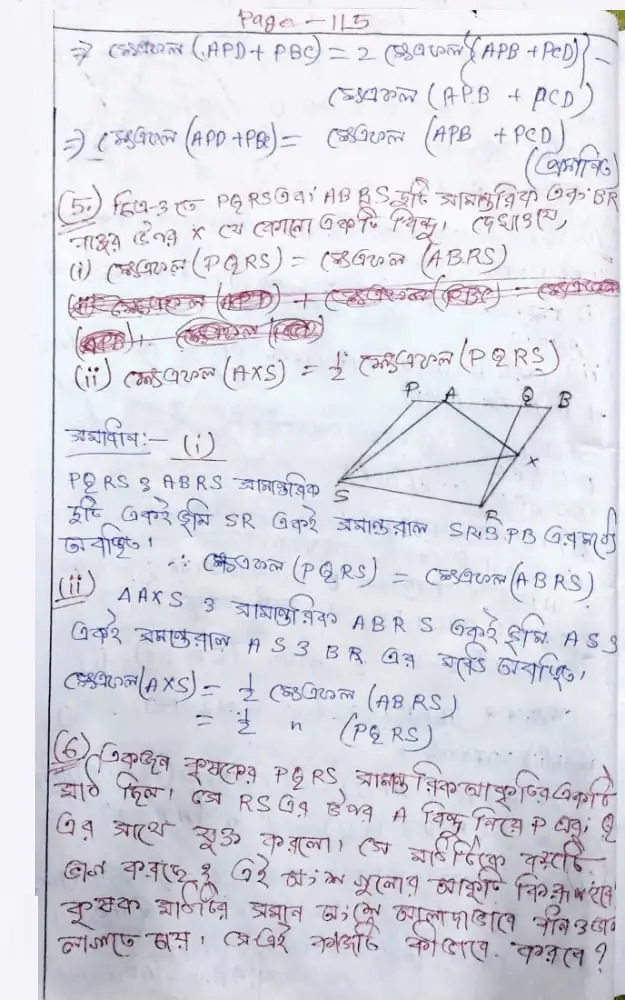 Page - 115
⇒ ক্ষেত্রফল (APD + PBC) = 2 ক্ষেত্রফল {(APB + PCD)} -
ক্ষেত্রফল (APB + PCD)
⇒ ক্ষেত্রফল (APD + PBC) = ক্ষেত্রফল (APB + PCD)
(প্রমাণিত)
(5.) চিত্র-৩ তে PQRS এবং ABRS দুটি সামান্তরিক এবং BR
বাহুর উপর X যে কোনো একটি বিন্দু। দেখাও যে,
(i) ক্ষেত্রফল (PQRS) = ক্ষেত্রফল (ABRS)
(ii) ক্ষেত্রফল (AXS) = 1/2 ক্ষেত্রফল (PQRS)
P A Q B
সমাধান:- (i)
X
PQRS ও ABRS সামান্তরিক
S
R
দুটি একই ভূমি SR একই সমান্তরাল SR ও PB এর মধ্যে
অবস্থিত।
∴ ক্ষেত্রফল (PQRS) = ক্ষেত্রফল (ABRS)
(ii)
ΔAXS ও সামান্তরিক ABRS একই ভূমি AS ও
একই সমান্তরাল AS ও BR এর মধ্যে অবস্থিত।
ক্ষেত্রফল (AXS) = 1/2 ক্ষেত্রফল (ABRS)
= 1/2 " (PQRS)
(6) একজন কৃষকের PQRS সামান্তরিক আকৃতির একটি
মাঠ ছিল। সে RS এর উপর A বিন্দু নিয়ে P এবং Q
এর সাথে যুক্ত করলো। সে মাঠটিকে কয়টি
ভাগ করছে? এই অংশ গুলোর আকৃতি কিরূপ হবে
কৃষক মাঠটির সমান অংশে আলাদাভাবে
লাগাতে চায়। সে এই কাজটি কীভাবে করবে?